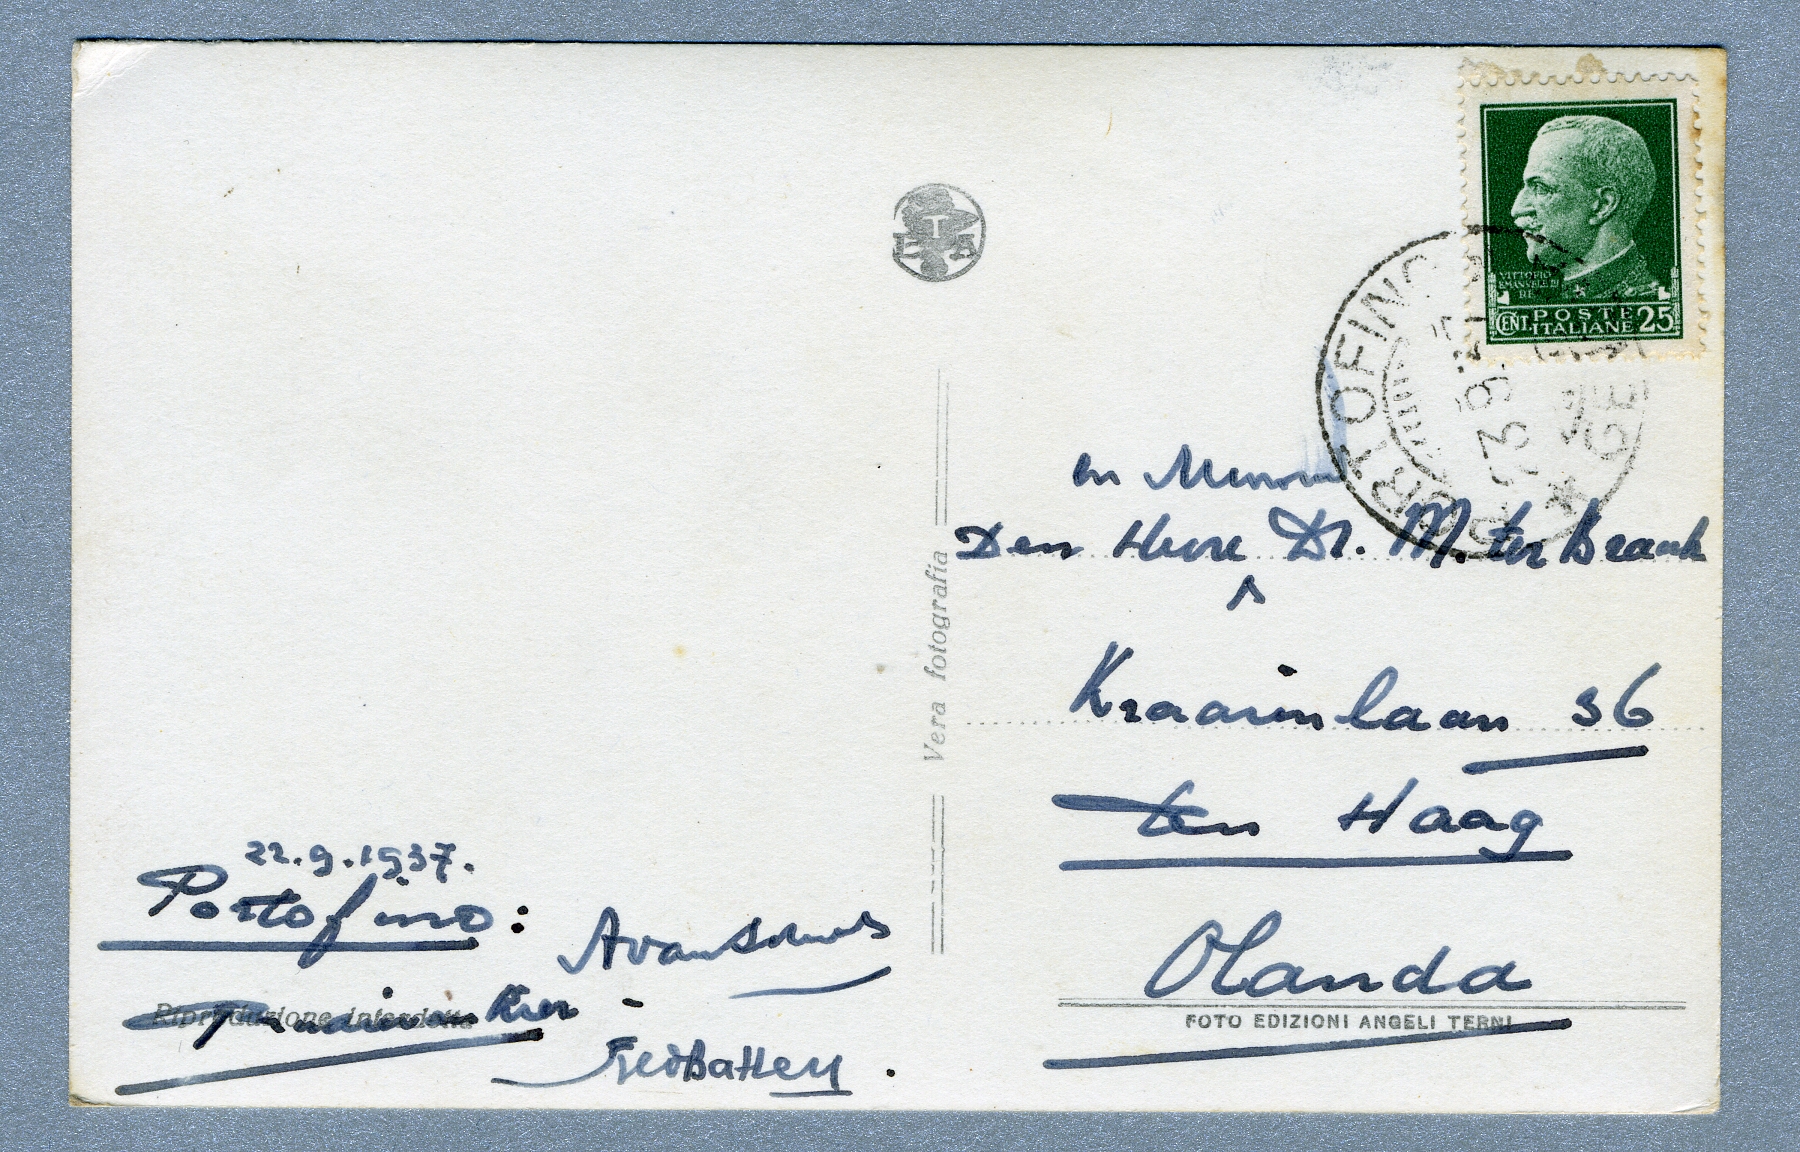 22.9.1937.
Portofino:
Riproduzione interdetta
Fred Batten.
ITA
Vera fotografia
VITTORIO
EMANUELE III
RE
CENT. POSTE
ITALIANE 25
PORTOFINO
23.9.37
GE
en Mevrouw
Den Heere Dr. M. ter Braak
Kraaienlaan 36
Den Haag
Olanda
FOTO EDIZIONI ANGELI TERNI